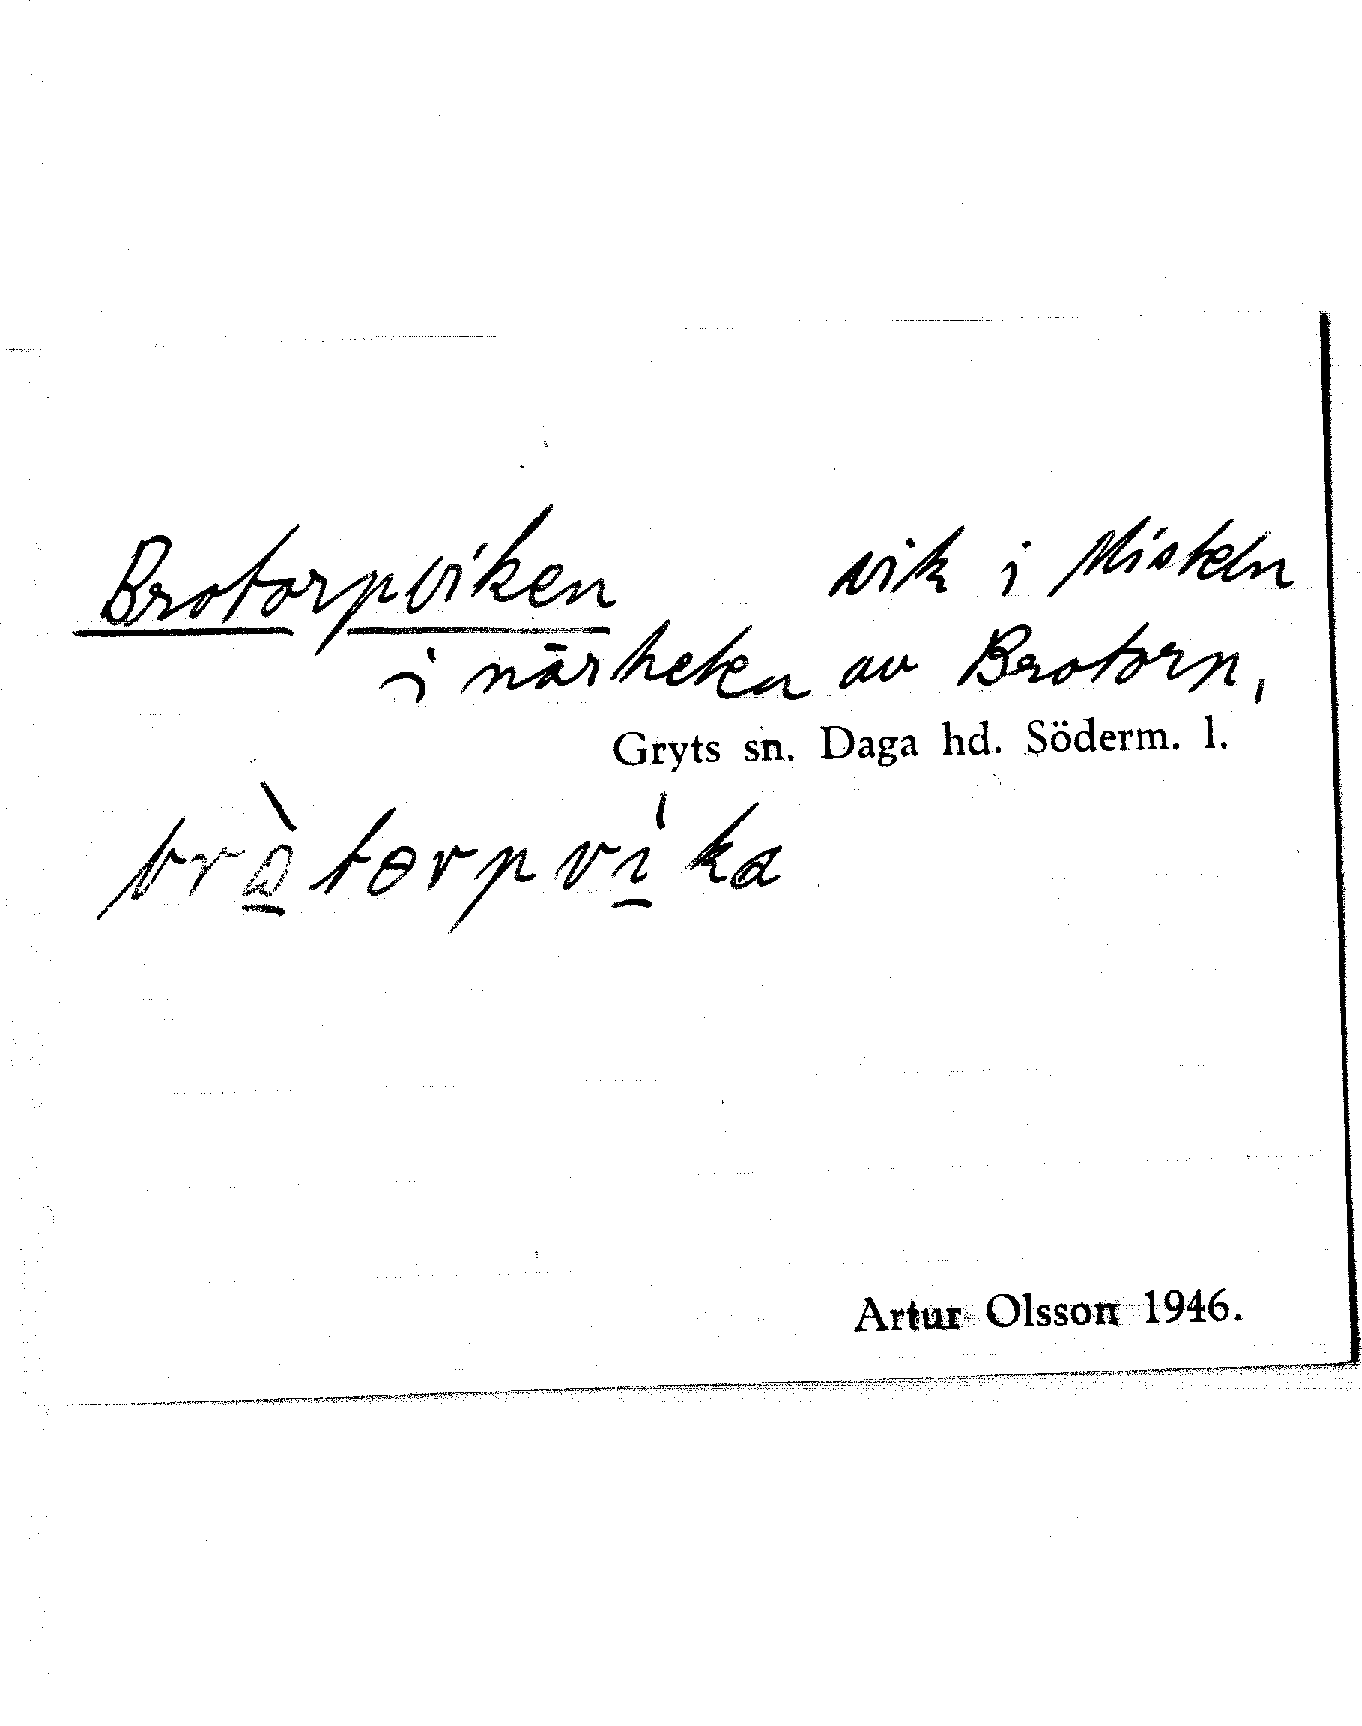 Brotorpviken vik i Misteln
i närheten av Brotorp,
Gryts sn. Daga hd. Söderm. l.
Artur Olsson 1946.